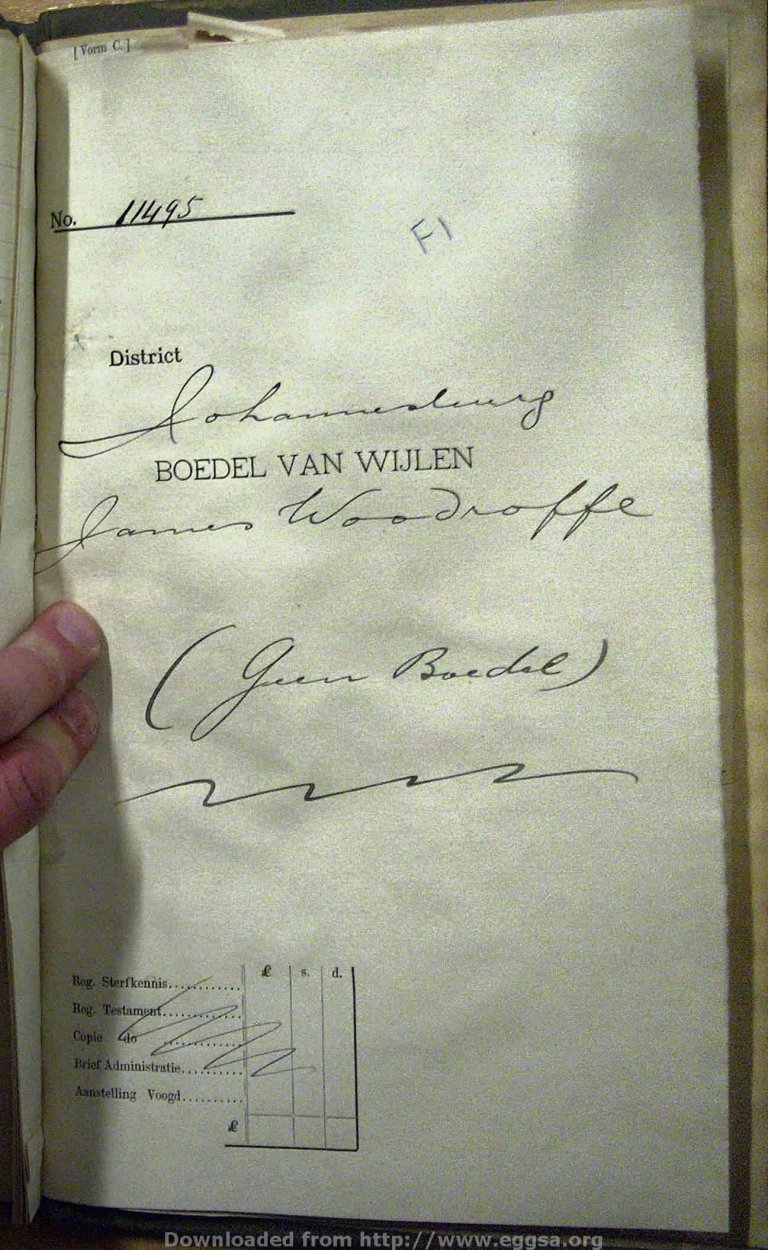 [ Vorm C. ]
No. 11495
F1
District
Johannesburg
BOEDEL VAN WIJLEN
James Woodroffe
(Geen Boedel)
£ s. d.
Reg. Sterfkennis............
Reg. Testament..............
Copie do ..............
Brief Administratie..........
Aanstelling Voogd..........
£
Downloaded from http://www.eggsa.org